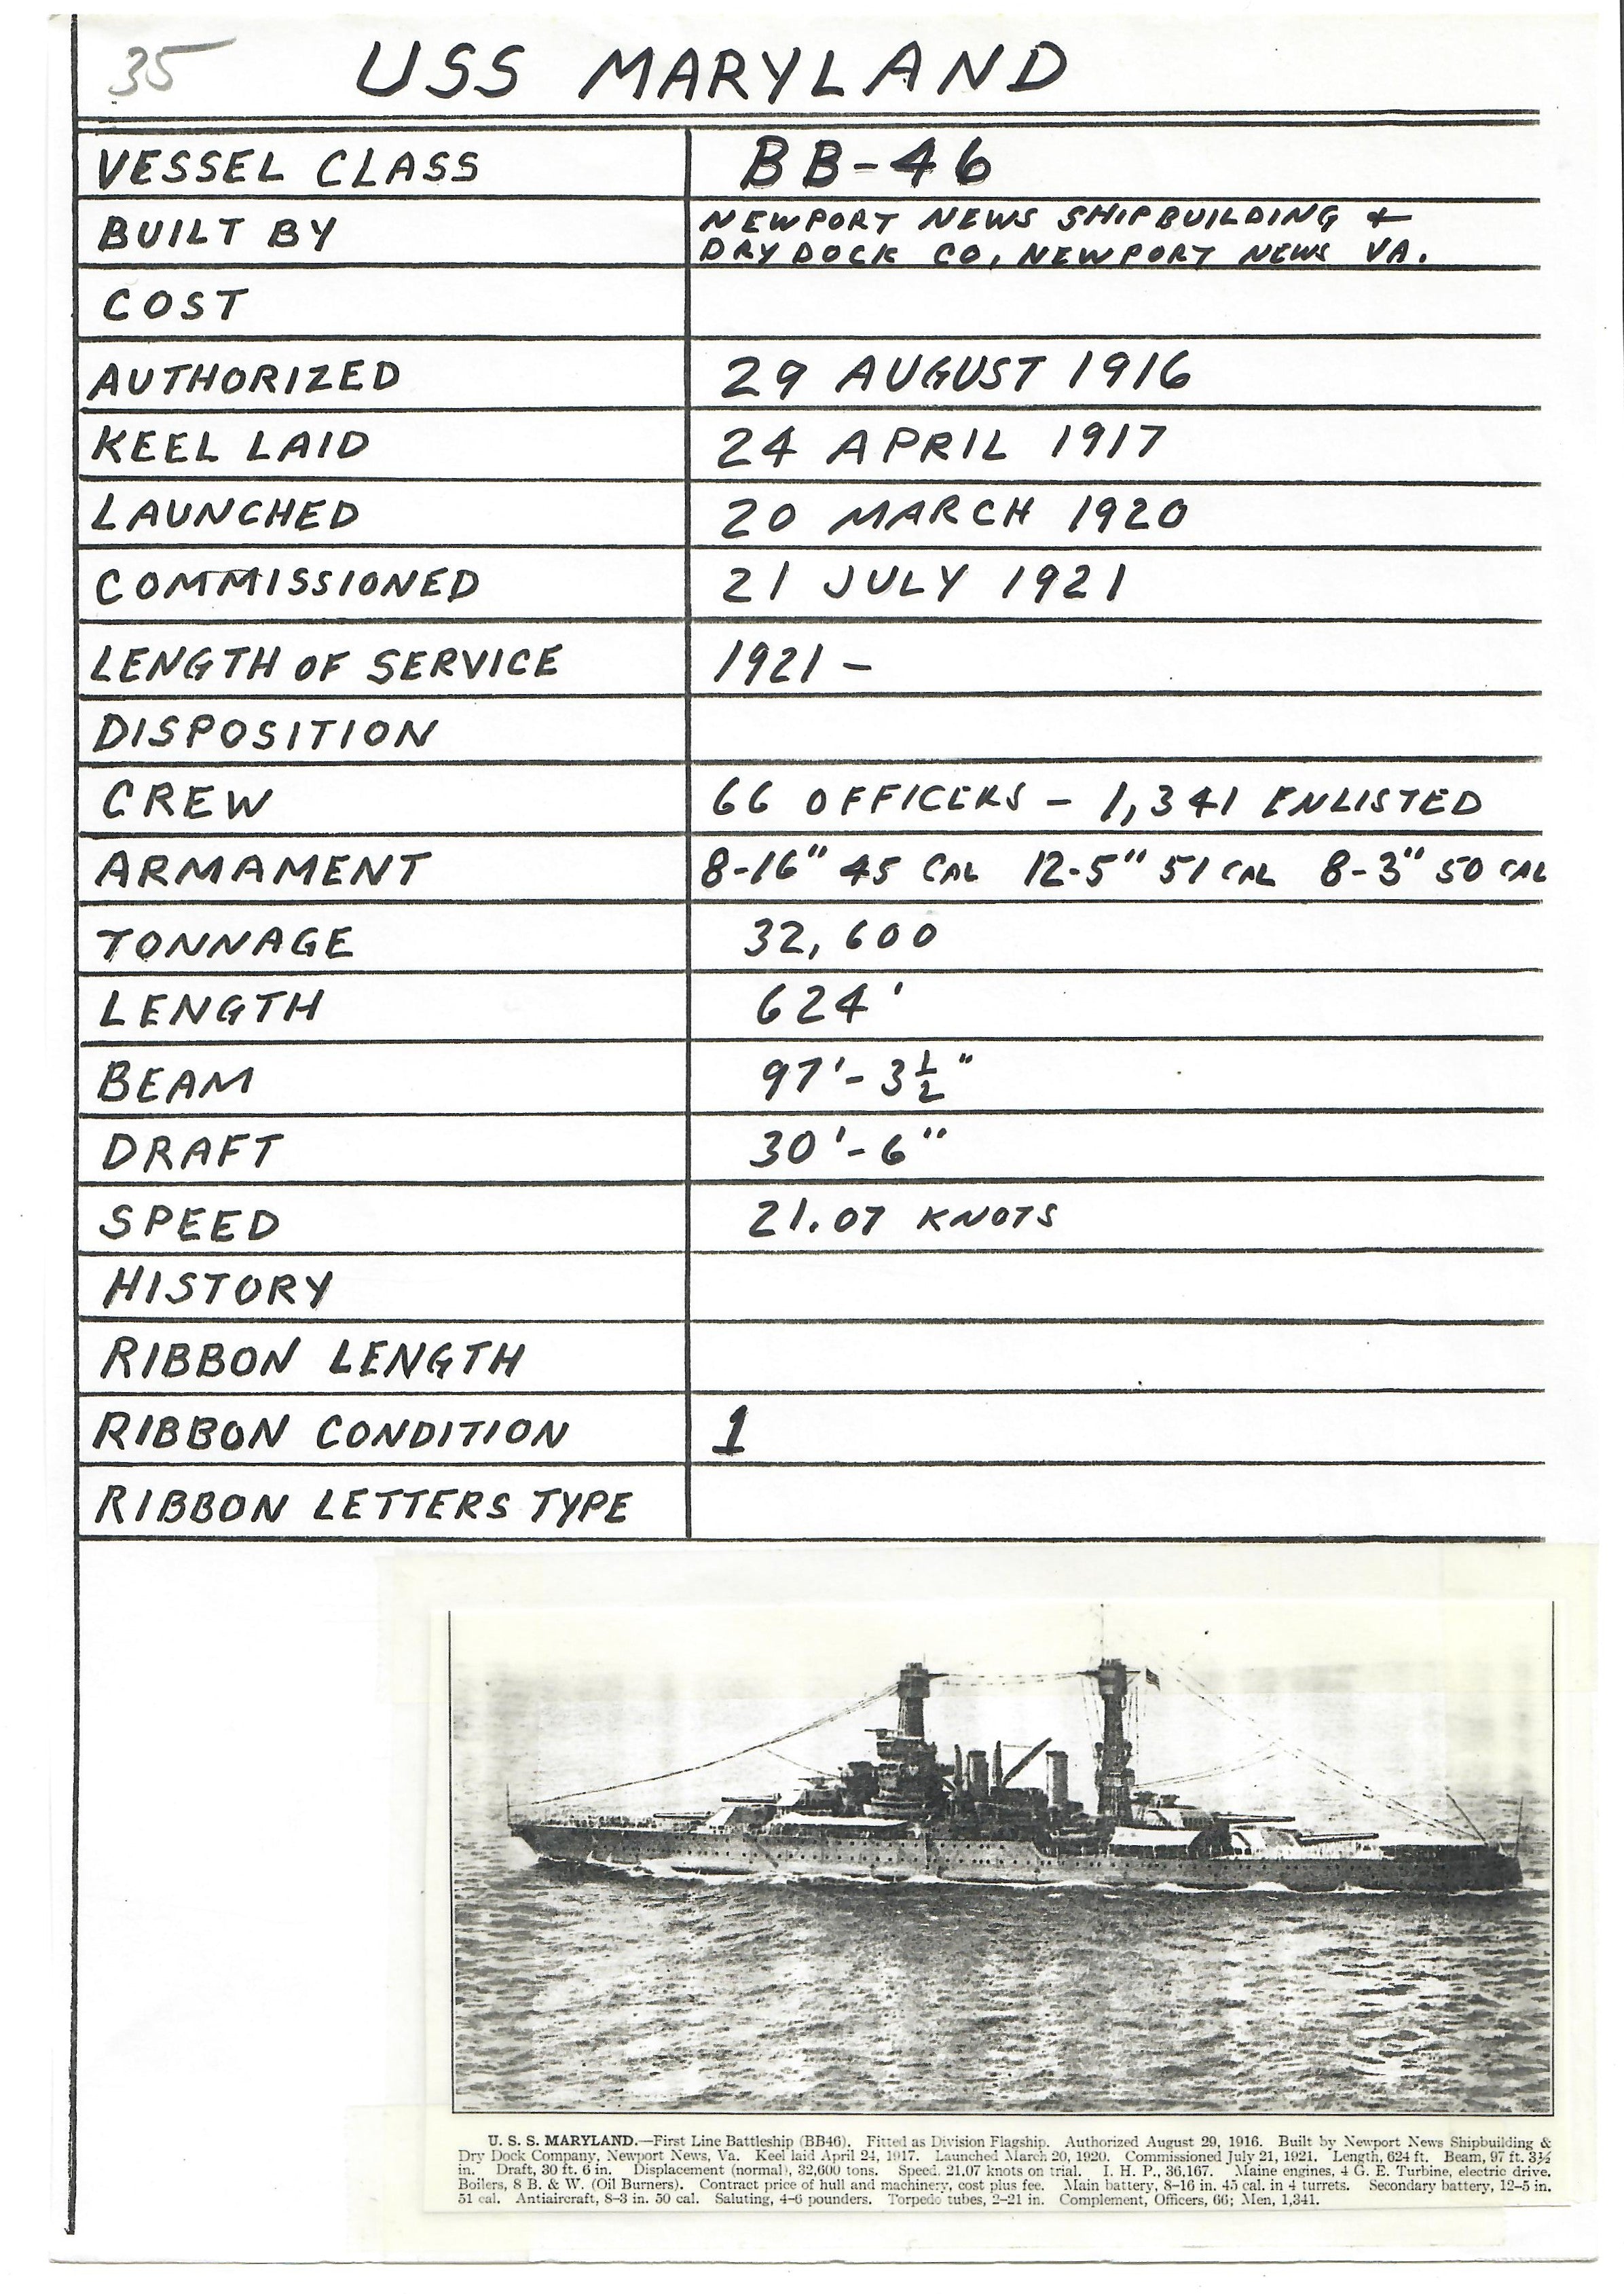 35 USS MARYLAND
VESSEL CLASS BB-46
BUILT BY NEWPORT NEWS SHIPBUILDING &
DRY DOCK CO, NEWPORT NEWS VA.
COST
AUTHORIZED 29 AUGUST 1916
KEEL LAID 24 APRIL 1917
LAUNCHED 20 MARCH 1920
COMMISSIONED 21 JULY 1921
LENGTH OF SERVICE 1921 -
DISPOSITION
CREW 66 OFFICERS - 1,341 ENLISTED
ARMAMENT 8-16" 45 CAL 12-5" 51 CAL 8-3" 50 CAL
TONNAGE 32,600
LENGTH 624'
BEAM 97'-3 1/2"
DRAFT 30'-6"
SPEED 21.07 KNOTS
HISTORY
RIBBON LENGTH
RIBBON CONDITION 1
RIBBON LETTERS TYPE
U. S. S. MARYLAND.—First Line Battleship (BB46). Fitted as Division Flagship. Authorized August 29, 1916. Built by Newport News Shipbuilding &
Dry Dock Company, Newport News, Va. Keel laid April 24, 1917. Launched March 20, 1920. Commissioned July 21, 1921. Length, 624 ft. Beam, 97 ft. 3½
in. Draft, 30 ft. 6 in. Displacement (normal), 32,600 tons. Speed, 21.07 knots on trial. I. H. P., 36,167. Maine engines, 4 G. E. Turbine, electric drive.
Boilers, 8 B. & W. (Oil Burners). Contract price of hull and machinery, cost plus fee. Main battery, 8–16 in. 45 cal. in 4 turrets. Secondary battery, 12–5 in.
51 cal. Antiaircraft, 8–3 in. 50 cal. Saluting, 4–6 pounders. Torpedo tubes, 2–21 in. Complement, Officers, 66; Men, 1,341.